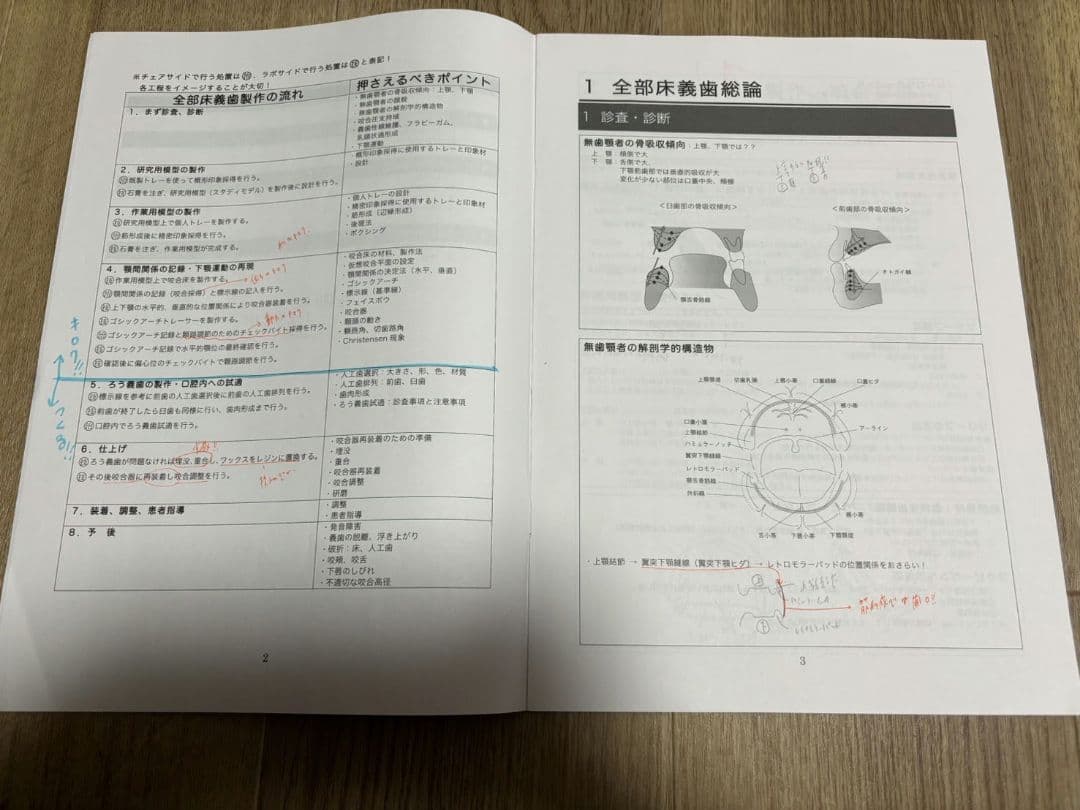 ※チェアサイドで行う処置は㋠、ラボサイドで行う処置は㋶と表記!
各工程をイメージすることが大切!
全部床義歯製作の流れ
押さえるべきポイント
1.まず診査、診断
・無歯顎者の骨吸収傾向:上顎、下顎
・無歯顎者の顔貌
・無歯顎者の解剖学的構造物
・咬合圧支持域
・義歯性線維腫、フラビーガム、
乳頭状過形成
・下顎運動
2.研究用模型の製作
既製トレーを使って概形印象採得を行う。
石膏を注ぎ、研究用模型(スタディモデル)を製作後に設計を行う。
・概形印象採得に使用するトレーと印象材
・設計
3.作業用模型の製作
研究用模型上で個人トレーを製作する。
筋形成後に精密印象採得を行う。
石膏を注ぎ、作業用模型が完成する。
・個人トレーの設計
・精密印象採得に使用するトレーと印象材
・筋形成(辺縁形成)
・後堤法
・ボクシング
4.顎間関係の記録・下顎運動の再現
作業用模型上で咬合床を製作する。
顎間関係の記録(咬合採得)と標示線の記入を行う。
上下顎の水平的、垂直的な位置関係により咬合器装着を行う。
ゴシックアーチトレーサーを製作する。
ゴシックアーチ記録と顆路調節のためのチェックバイト採得を行う。
ゴシックアーチ記録で水平的顎位の最終確認を行う。
確認後に偏心位のチェックバイトで顆路調節を行う。
・咬合床の材料、製作法
・仮想咬合平面の設定
・顎間関係の決定法(水平、垂直)
・ゴシックアーチ
・標示線(基準線)
・フェイスボウ
・咬合器
・顆頭の動き
・顆路角、切歯路角
・Christensen 現象
キロク!!
つくる!!
5.ろう義歯の製作・口腔内への試適
標示線を参考に前歯の人工歯選択後に前歯の人工歯排列を行う。
前歯が終了したら臼歯も同様に行い、歯肉形成まで行う。
口腔内でろう義歯試適を行う。
・人工歯選択:大きさ、形、色、材質
・人工歯排列:前歯、臼歯
・歯肉形成
・ろう義歯試適:診査事項と注意事項
6.仕上げ
ろう義歯が問題なければ埋没、重合し、ワックスをレジンに置換する。
その後咬合器に再装着し咬合調整を行う。
・咬合器再装着のための準備
・埋没
・重合
・咬合器再装着
・咬合調整
・研磨
7.装着、調整、患者指導
・調整
・患者指導
8.予 後
・発音障害
・義歯の脱離、浮き上がり
・破折:床、人工歯
・咬頬、咬舌
・下唇のしびれ
・不適切な咬合高径
2
1 全部床義歯総論
1 診査・診断
無歯顎者の骨吸収傾向:上顎、下顎では??
上 顎:頬側で大
下 顎:舌側で大、
下顎前歯部では垂直的吸収が大
変化が少ない部位は口蓋中央、頬棚
<臼歯部の骨吸収傾向>
<前歯部の骨吸収傾向>
オトガイ棘
顎舌骨筋線
無歯顎者の解剖学的構造物
上顎顎堤
切歯乳頭
上唇小帯
口蓋縫線
口蓋ヒダ
頬小帯
口蓋小窩
上顎結節
アーライン
ハミュラーノッチ
翼突下顎縫線
レトロモラーパッド
顎舌骨筋線
外斜線
頬小帯
舌小帯
下唇小帯
下顎顎堤
・上顎結節 → 翼突下顎縫線(翼突下顎ヒダ)→ レトロモラーパッドの位置関係をおさらい!
3